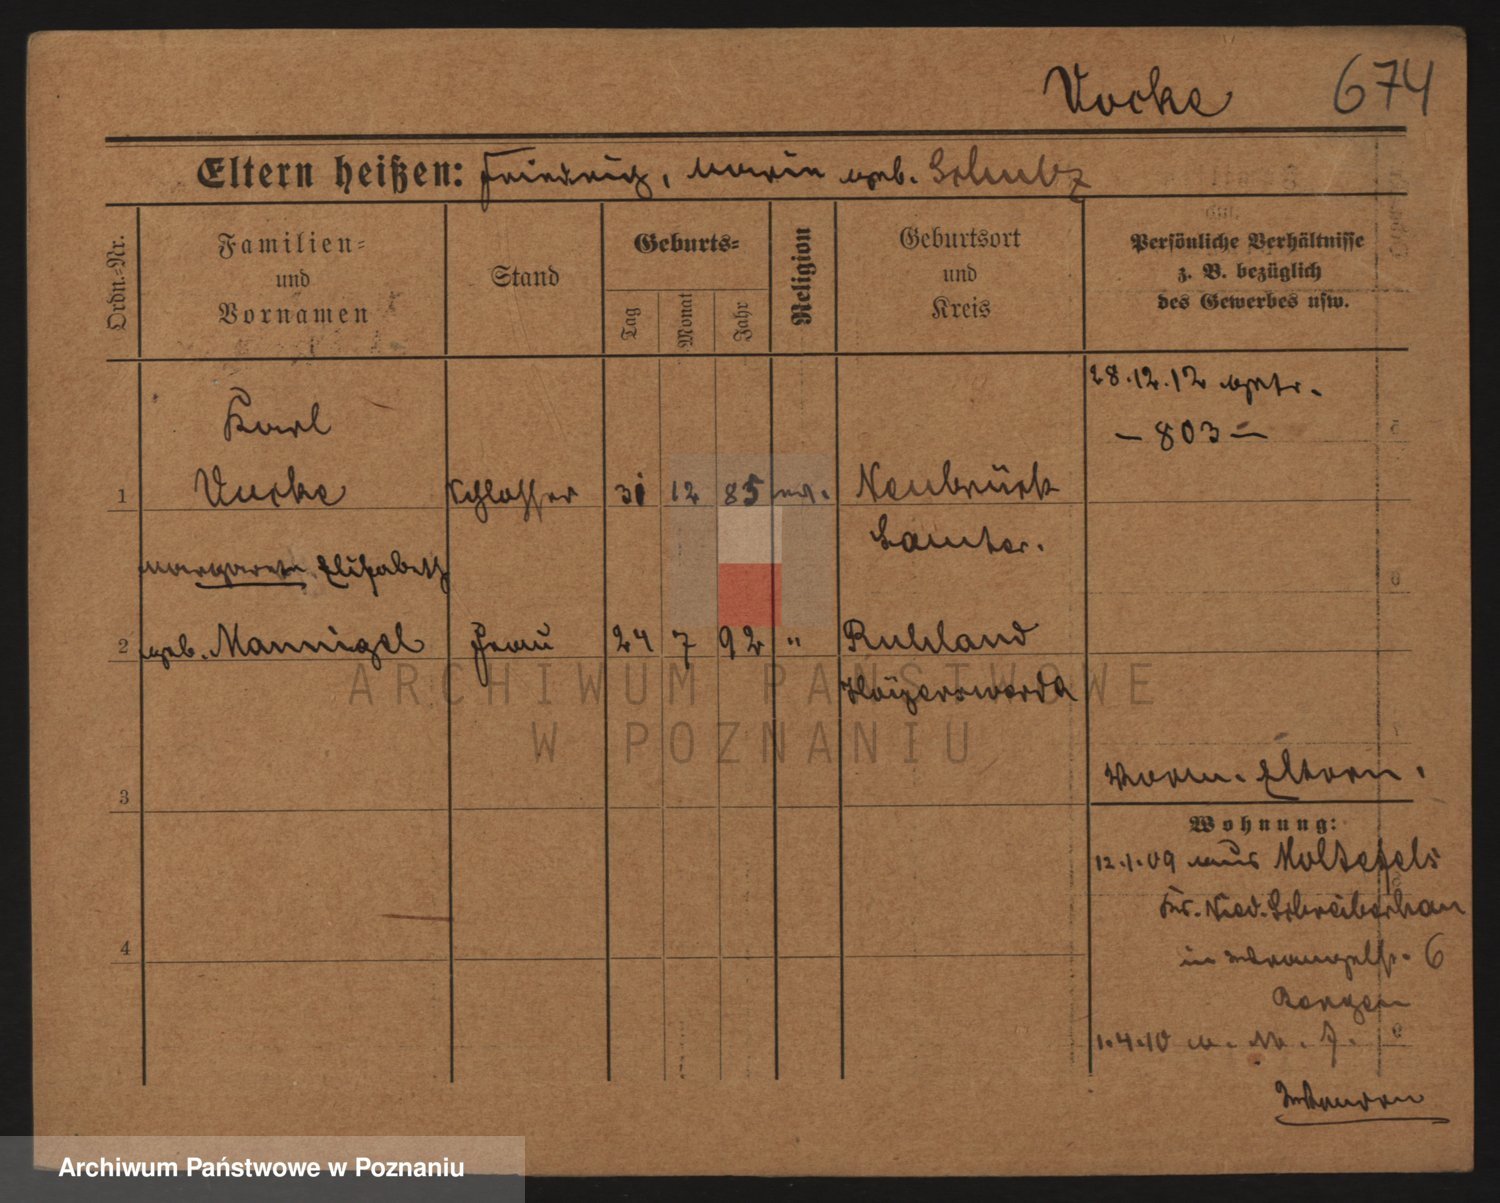 Vocke 674
Eltern heißen: Friedrich, Marie geb. Schulz
Ordn.-Nr.
Familien-
und
Vornamen
Stand
Geburts-
Tag
Monat
Jahr
Religion
Geburtsort
und
Kreis
Persönliche Verhältnisse
z. B. bezüglich
des Gewerbes usw.
28.12.12 getr.
– 803 –
Karl
1 Vocke Schlosser 31 12 85 ev. Neubrück
Samter.
Margarete Elisabeth
2 geb. Mannigel Frau 24 7 92 " Ruhland
Hoyerswerda
ARCHIWUM PAŃSTWOWE
W POZNANIU
3
Worm. Eltern.
Wohnung:
12.1.09 aus
Krs. Nied. Schreiberhau
in Wrangelstr. 6
4
1.4.10
Archiwum Państwowe w Poznaniu